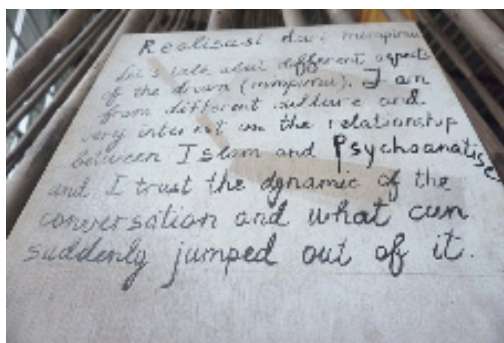 Realisasi dari mimpimu
Let's talk about different aspects
of the dream (mimpimu). I am
from different culture and
very interest on the relationship
between Islam and Psychoanatise
and I trust the dynamic of the
conversation and what can
suddenly jumped out of it.